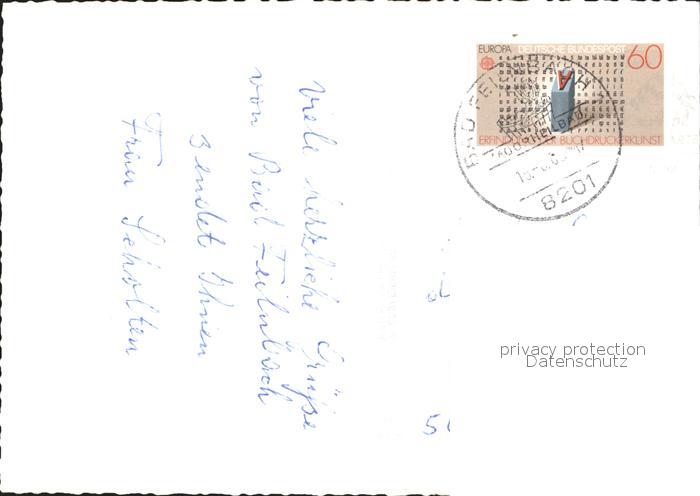 Viele herzliche Grüße
von Bad Feilnbach
sendet Ihnen
Frau Scholten
EUROPA DEUTSCHE BUNDESPOST 60
A
ERFINDUNG DER BUCHDRUCKERKUNST
BAD FEILNBACH
8201
privacy protection
Datenschutz